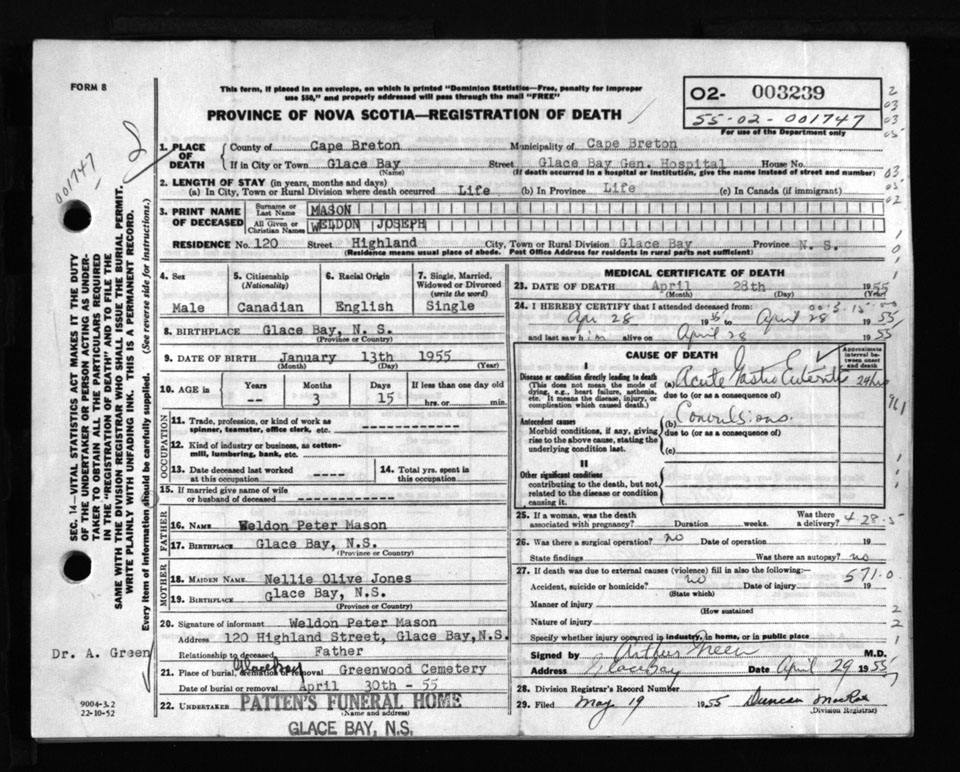 FORM 8
This form, if placed in an envelope, on which is printed "Dominion Statistics—Free, penalty for improper
use $50," and properly addressed will pass through the mail "FREE"
PROVINCE OF NOVA SCOTIA—REGISTRATION OF DEATH
02- 003239
55-02-001747
For use of the Department only
001747
SEC. 14—VITAL STATISTICS ACT MAKES IT THE DUTY
OF THE UNDERTAKER OR PERSON ACTING AS UNDER-
TAKER TO OBTAIN ALL THE PARTICULARS REQUIRED
IN THE "REGISTRATION OF DEATH" AND TO FILE THE
SAME WITH THE DIVISION REGISTRAR WHO SHALL ISSUE THE BURIAL PERMIT.
WRITE PLAINLY WITH UNFADING INK. THIS IS A PERMANENT RECORD.
Every item of Information should be carefully supplied. (See reverse side for instructions.)
1. PLACE OF DEATH
County of Cape Breton Municipality of Cape Breton
If in City or Town Glace Bay Street Glace Bay Gen. Hospital House No.
(Name) (If death occurred in a hospital or institution, give the name instead of street and number)
2. LENGTH OF STAY (in years, months and days)
(a) In City, Town or Rural Division where death occurred Life (b) In Province Life (c) In Canada (if immigrant)
3. PRINT NAME OF DECEASED
Surname or Last Name MASON
All Given or Christian Names WELDON JOSEPH
RESIDENCE No. 120 Street Highland City, Town or Rural Division Glace Bay Province N. S.
(Residence means usual place of abode. Post Office Address for residents in rural parts not sufficient)
4. Sex
Male
5. Citizenship (Nationality)
Canadian
6. Racial Origin
English
7. Single, Married, Widowed or Divorced (write the word)
Single
8. BIRTHPLACE Glace Bay, N. S.
(Province or Country)
9. DATE OF BIRTH January 13th 1955
(Month) (Day) (Year)
10. AGE in Years Months Days If less than one day old
-- 3 15 hrs. or min.
OCCUPATION
11. Trade, profession, or kind of work as
spinner, teamster, office clerk, etc.
12. Kind of industry or business, as cotton-
mill, lumbering, bank, etc.
13. Date deceased last worked
at this occupation ----
14. Total yrs. spent in
this occupation
15. If married give name of wife
or husband of deceased
FATHER
16. NAME Weldon Peter Mason
17. BIRTHPLACE Glace Bay, N.S.
(Province or Country)
MOTHER
18. MAIDEN NAME Nellie Olive Jones
19. BIRTHPLACE Glace Bay, N.S.
(Province or Country)
20. Signature of informant Weldon Peter Mason
Address 120 Highland Street, Glace Bay, N.S.
Relationship to deceased Father
21. Place of burial, cremation or removal Glace Bay Greenwood Cemetery
Date of burial or removal April 30th - 55
22. UNDERTAKER PATTEN'S FUNERAL HOME
(Name and address)
GLACE BAY, N.S.
Dr. A. Green
9004-3.2
22-10-52
MEDICAL CERTIFICATE OF DEATH
23. DATE OF DEATH April 28th 1955
(Month) (Day) (Year)
24. I HEREBY CERTIFY that I attended deceased from:
Apr 28 1955 to April 28 1955
and last saw him alive on April 28 1955
CAUSE OF DEATH
Approximate interval between onset and death
I
Disease or condition directly leading to death
(This does not mean the mode of
dying, e.g., heart failure, asthenia,
etc. It means the disease, injury, or
complication which caused death.)
(a) Acute Gastro Enteritis 24 hrs
due to (or as a consequence of)
Antecedent causes
Morbid conditions, if any, giving
rise to the above cause, stating the
underlying condition last.
(b) Convulsions.
due to (or as a consequence of)
(c)
II
Other significant conditions
contributing to the death, but not
related to the disease or condition
causing it.
25. If a woman, was the death
associated with pregnancy? Duration weeks. Was there a delivery?
26. Was there a surgical operation? no Date of operation 19
State findings Was there an autopsy? no
27. If death was due to external causes (violence) fill in also the following:—
Accident, suicide or homicide? no Date of injury 19
(State which)
571.0
Manner of injury
(How sustained)
Nature of injury
Specify whether injury occurred in industry, in home, or in public place
Signed by Arthur Green M.D.
Address Glace Bay Date April 29 1955
28. Division Registrar's Record Number
29. Filed May 19 1955 Duncan MacRae
(Division Registrar)